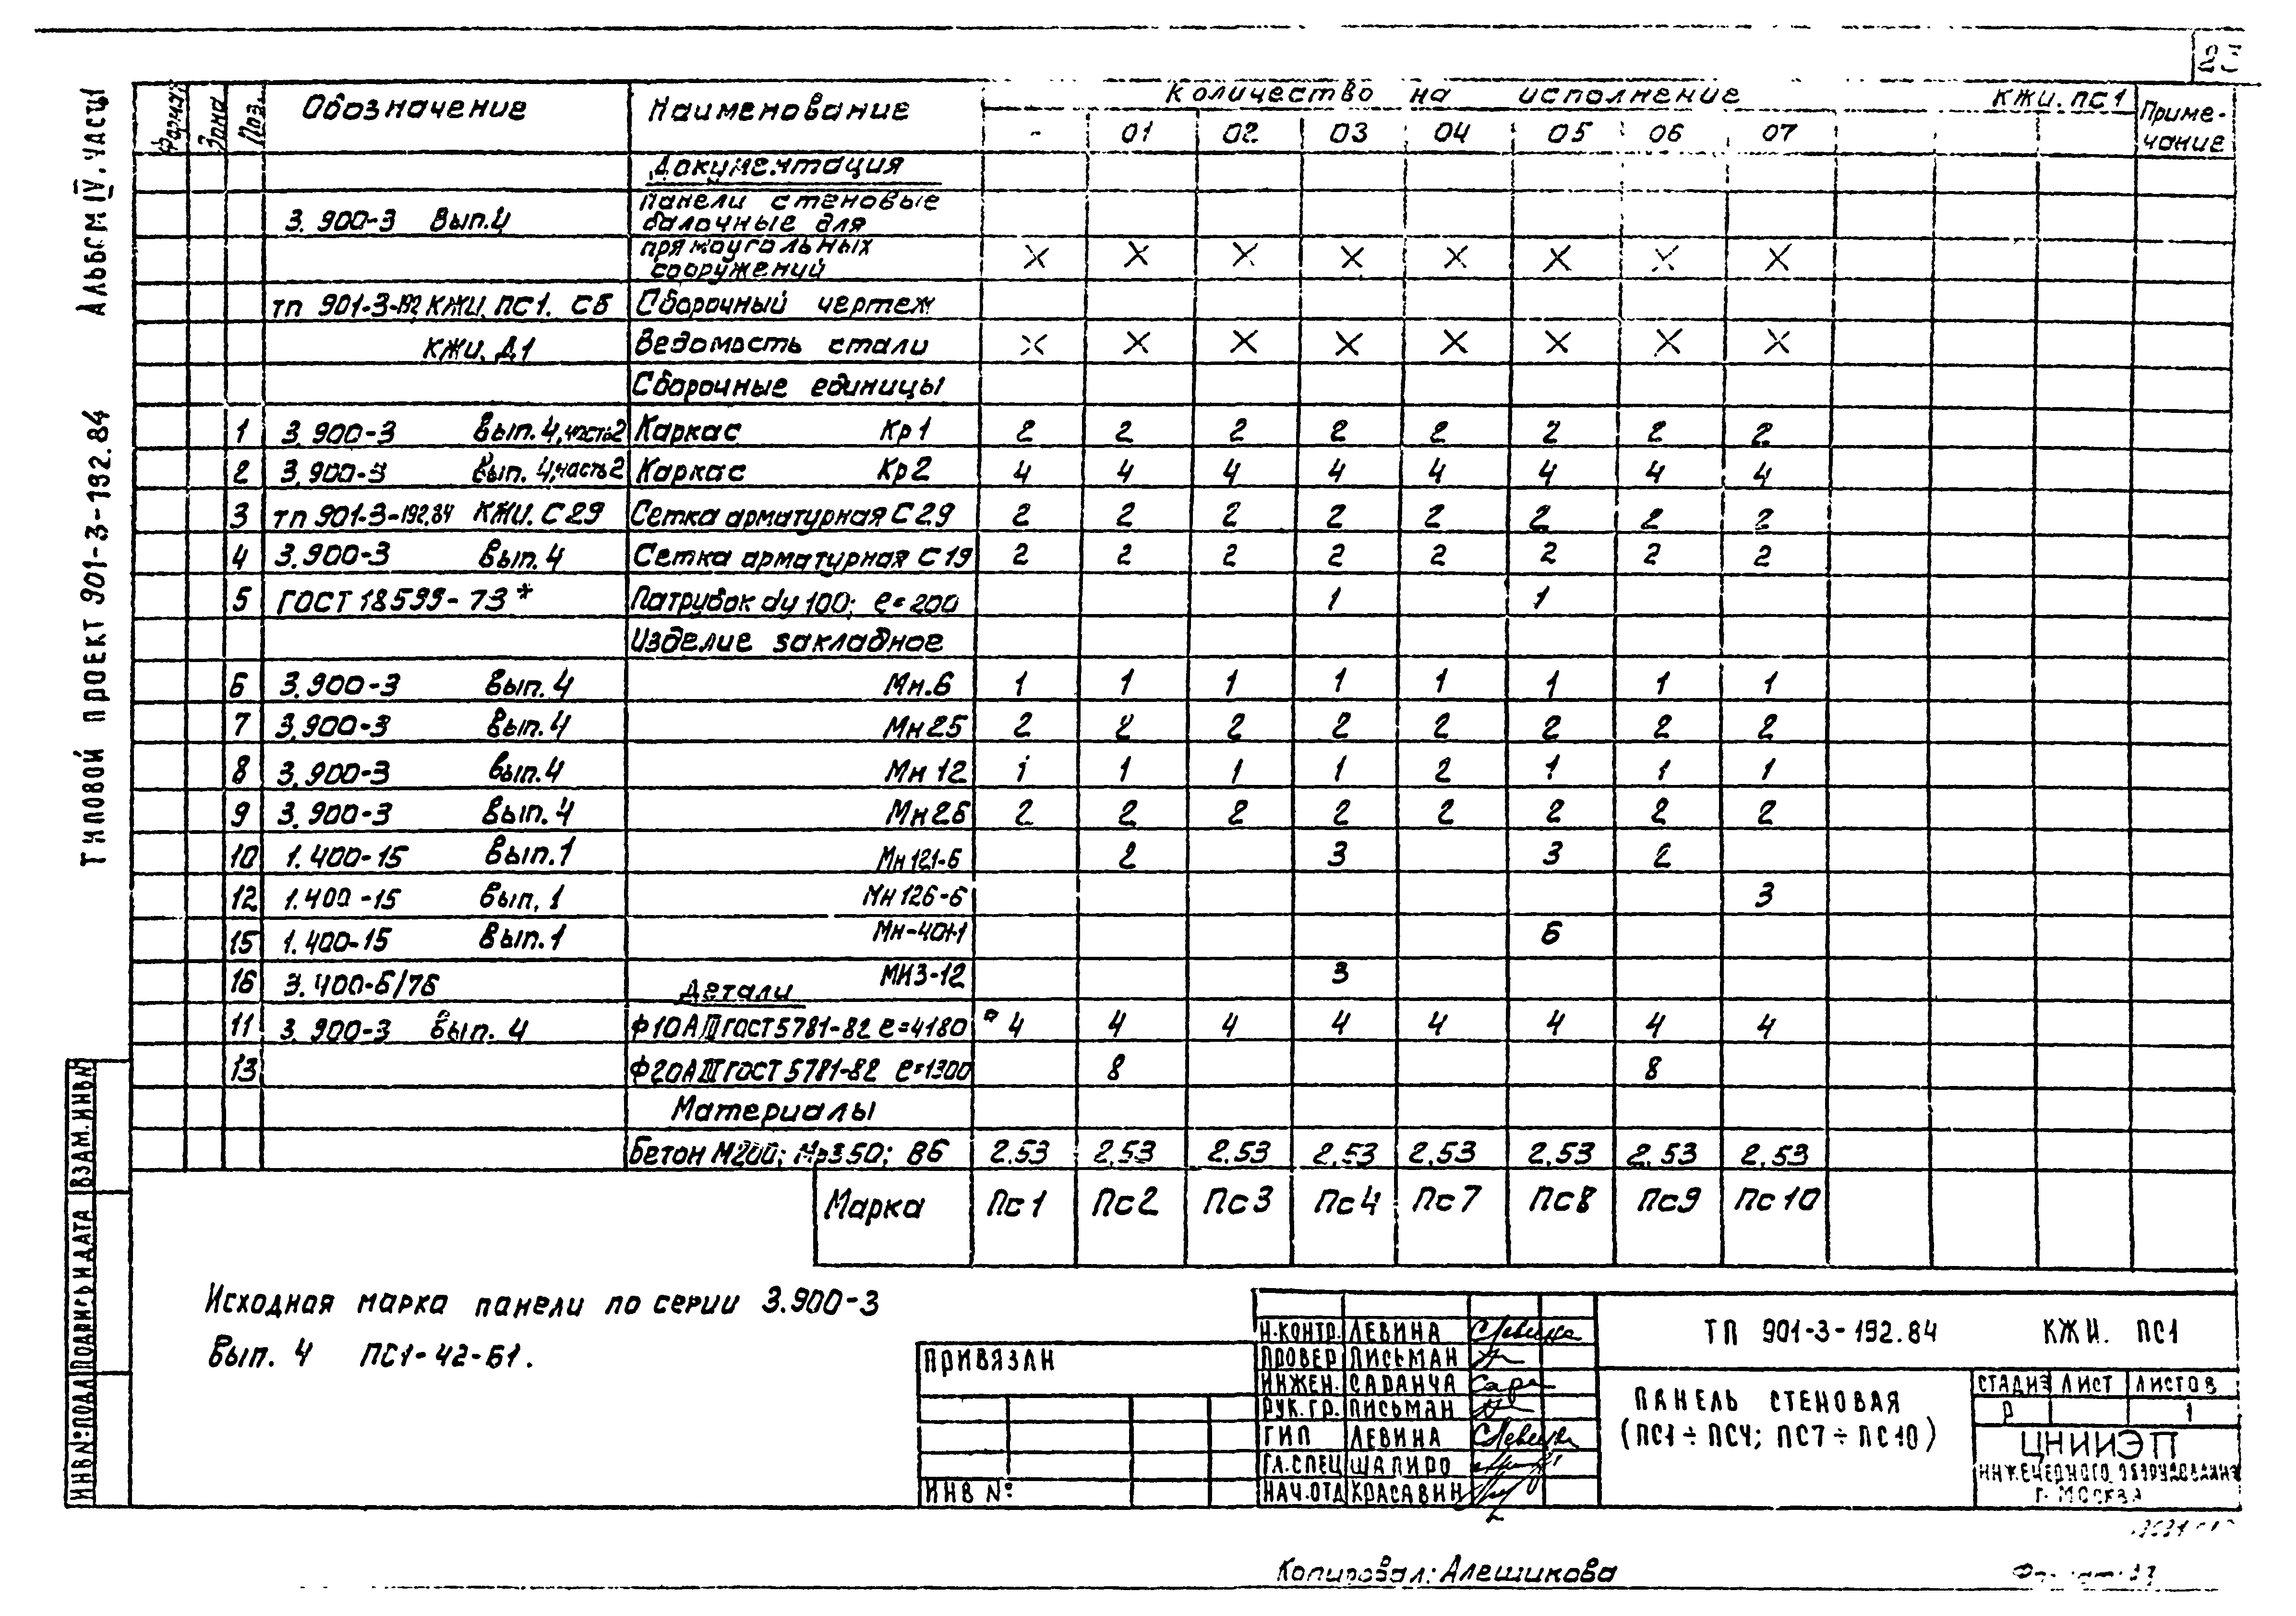 23
Альбом IV. часть
Типовой проект 901-3-192.84
Формат Зона Поз. Обозначение Наименование Количество на исполнение КЖИ.ПС1 Приме-
чание
- 01 02 03 04 05 06 07
Документация
3.900-3 Вып.4 Панели стеновые
балочные для
прямоугольных
сооружений X X X X X X X X
ТП 901-3-192 КЖИ.ПС1. СБ Сборочный чертеж
КЖИ. Д1 Ведомость стали X X X X X X X X
Сборочные единицы
1 3.900-3 Вып.4,часть2 Каркас Кр1 2 2 2 2 2 2 2 2
2 3.900-3 Вып.4,часть2 Каркас Кр2 4 4 4 4 4 4 4 4
3 ТП 901-3-192.84 КЖИ.С29 Сетка арматурная С29 2 2 2 2 2 2 2 2
4 3.900-3 Вып.4 Сетка арматурная С19 2 2 2 2 2 2 2 2
5 ГОСТ 18599-73* Патрубок dy 100; e=200 1 1
Изделие закладное
6 3.900-3 Вып.4 Мн.6 1 1 1 1 1 1 1 1
7 3.900-3 Вып.4 Мн25 2 2 2 2 2 2 2 2
8 3.900-3 Вып.4 Мн12 1 1 1 1 2 1 1 1
9 3.900-3 Вып.4 Мн26 2 2 2 2 2 2 2 2
10 1.400-15 Вып.1 Мн121-6 2 3 3 2
12 1.400-15 Вып.1 Мн126-6 3
15 1.400-15 Вып.1 Мн-401-1 6
16 3.400-6/76 МИ3-12 3
Детали
11 3.900-3 Вып.4 Ф10АIII ГОСТ5781-82 e=4180 4 4 4 4 4 4 4 4
13 Ф20АIII ГОСТ5781-82 e=1300 8 8
Материалы
Бетон М200; Мрз50; В6 2.53 2.53 2.53 2.53 2.53 2.53 2.53 2.53
Марка Пс1 Пс2 Пс3 Пс4 Пс7 Пс8 Пс9 Пс10
Исходная марка панели по серии 3.900-3
Вып. 4 ПС1-42-Б1.
ВЗАМ.ИНВ№
ПОДПИСЬ И ДАТА
ИНВ№ПОДЛ
ПРИВЯЗАН
ИНВ №
Н.КОНТР. ЛЕВИНА
ПРОВЕР ПИСЬМАН
ИНЖЕН. САРАНЧА
РУК.ГР. ПИСЬМАН
ГИП ЛЕВИНА
ГЛ.СПЕЦ ШАПИРО
НАЧ.ОТД КРАСАВИН
ТП 901-3-192.84 КЖИ. ПС1
ПАНЕЛЬ СТЕНОВАЯ
(ПС1÷ПС4; ПС7÷ПС10)
СТАДИЯ ЛИСТ ЛИСТОВ
Р 1
ЦНИИЭП
ИНЖЕНЕРНОГО ОБОРУДОВАНИЯ
Г. МОСКВА
Копировал: Алешикова